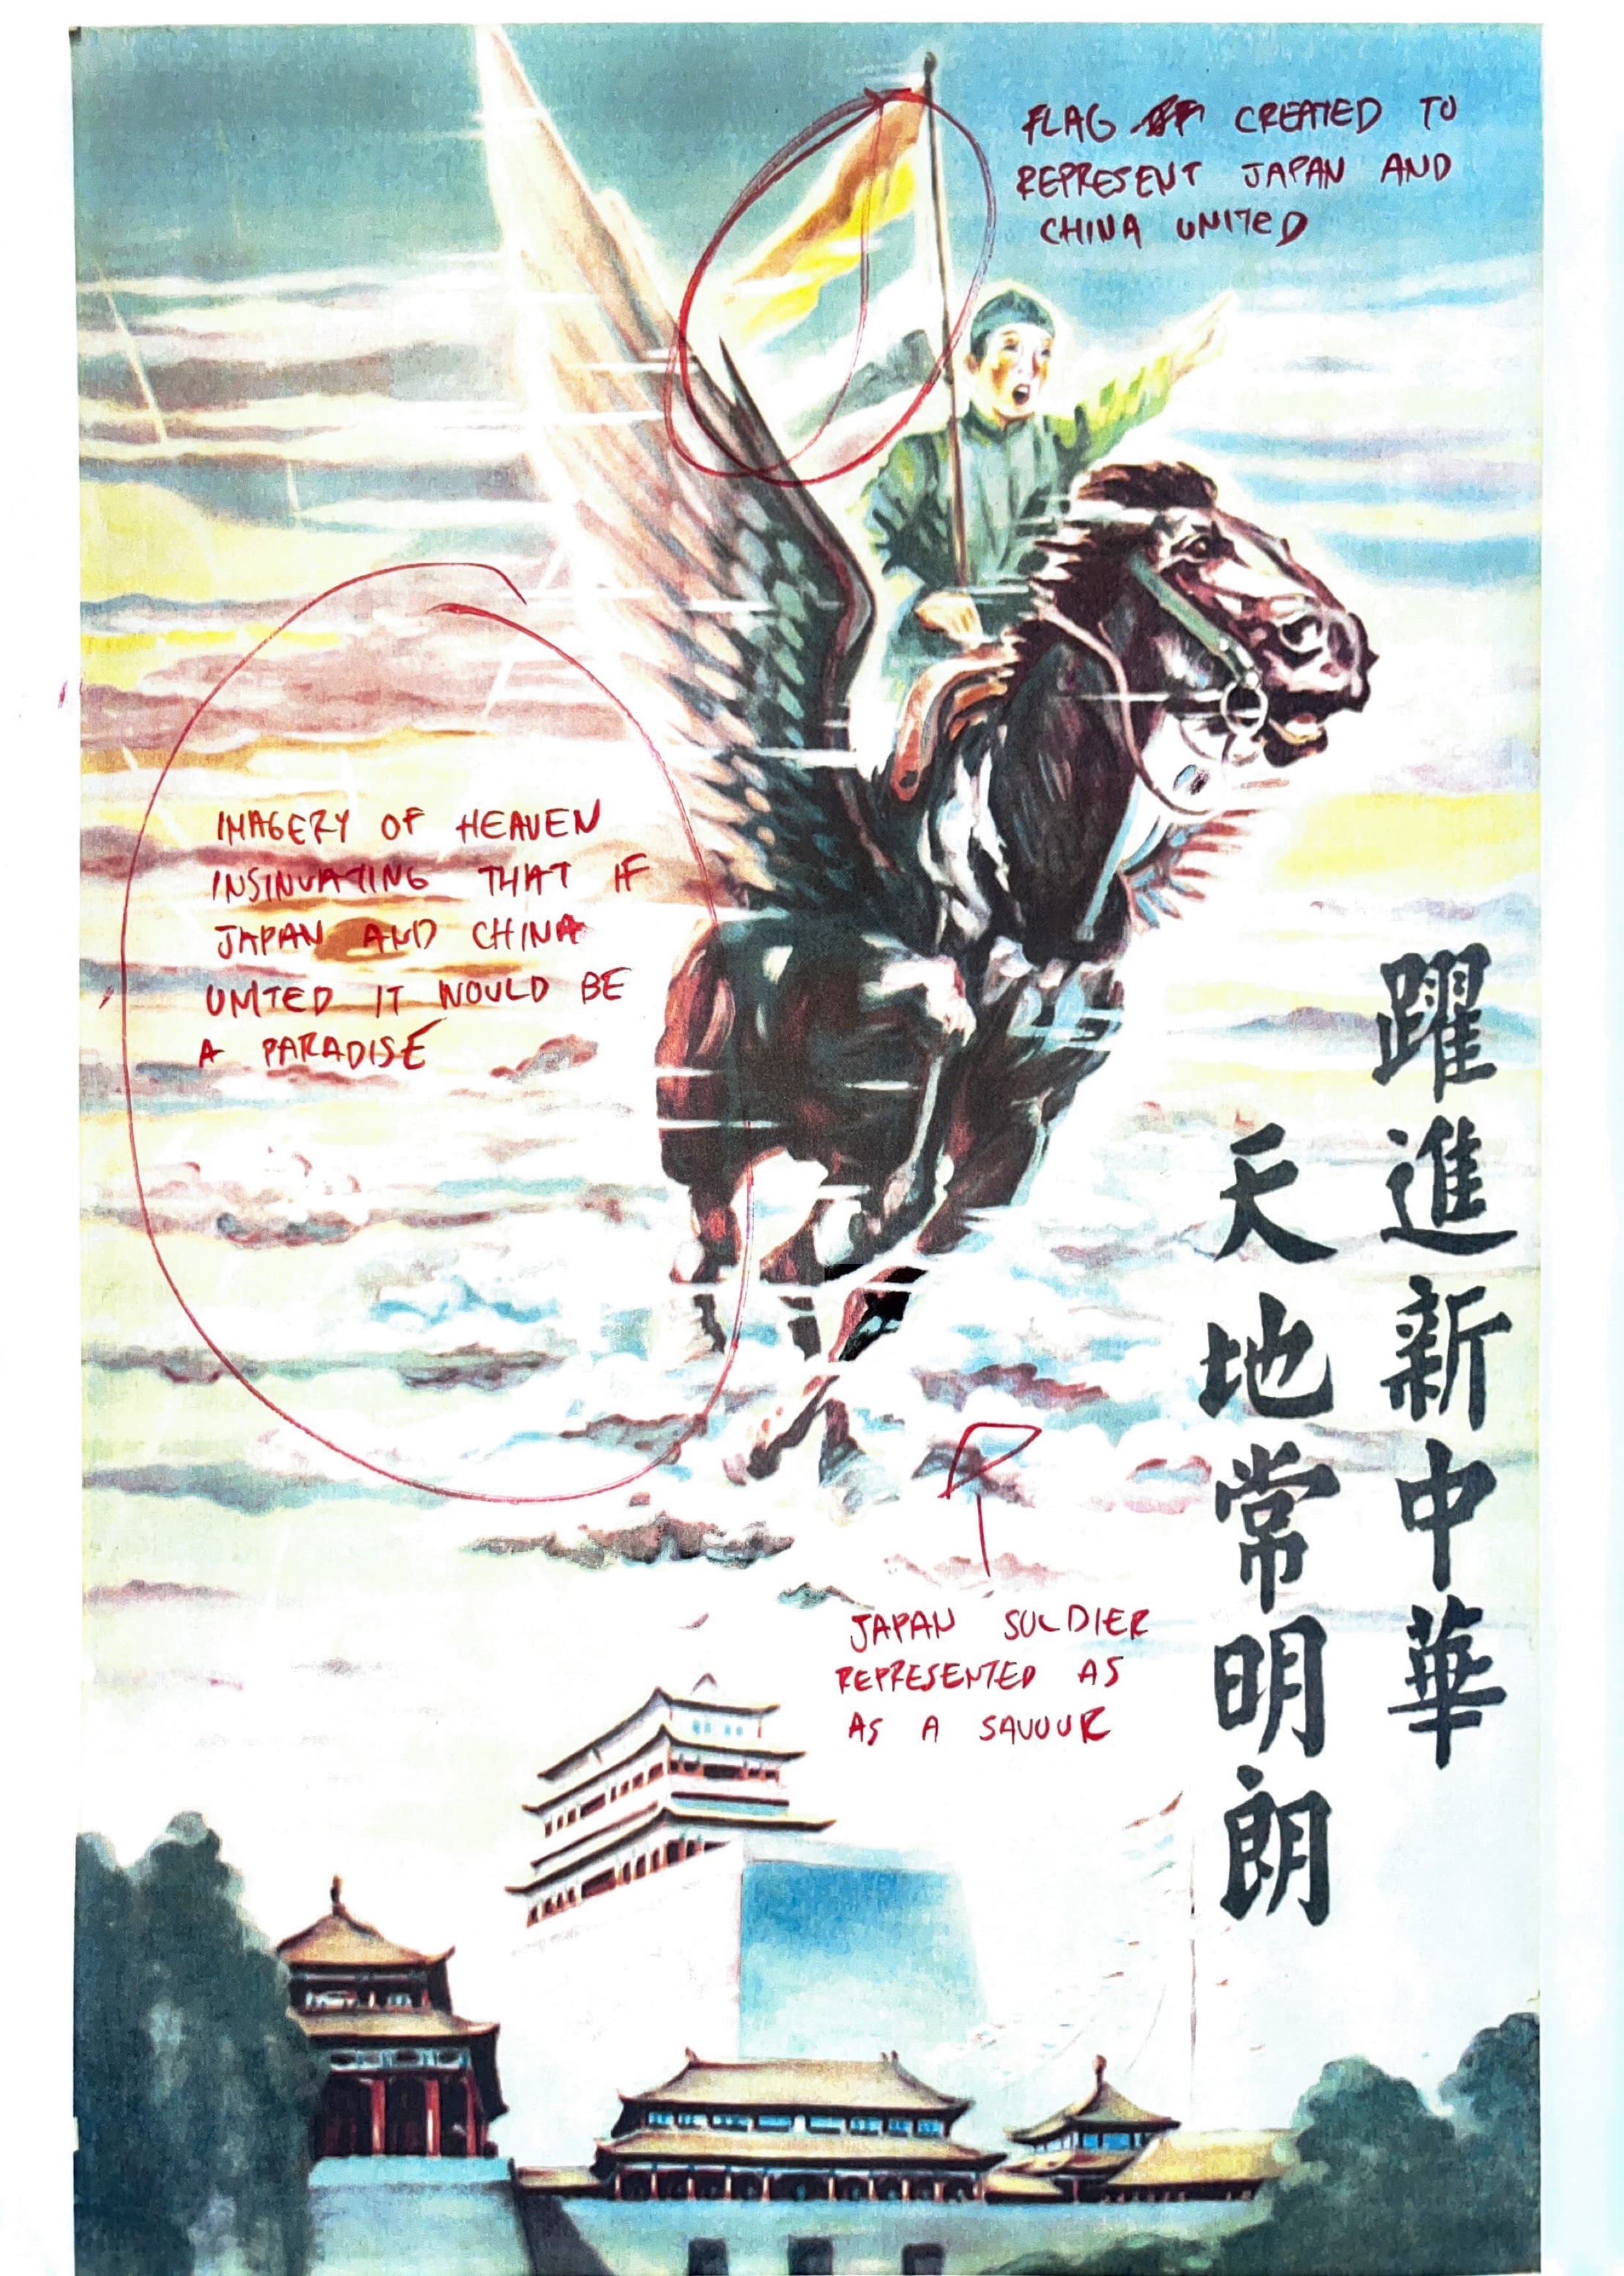 FLAG OF CREATED TO
REPRESENT JAPAN AND
CHINA UNITED
IMAGERY OF HEAVEN
INSINUATING THAT IF
JAPAN AND CHINA
UNITED IT WOULD BE
A PARADISE
躍進新中華
天地常明朗
JAPAN SOLDIER
REPRESENTED AS
AS A SAVOUR